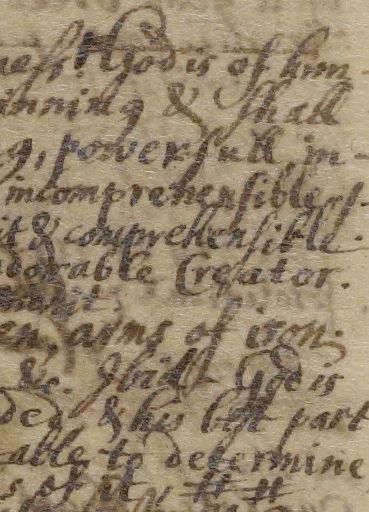 ness. God is of him
inning & shall
g, powerfull in-
incomprehensible s.
it & comprehensible.
dorable Creator.
an, arms of iron.
&c. Ibid. God is
ded & his best part
able to determine
s of it ##